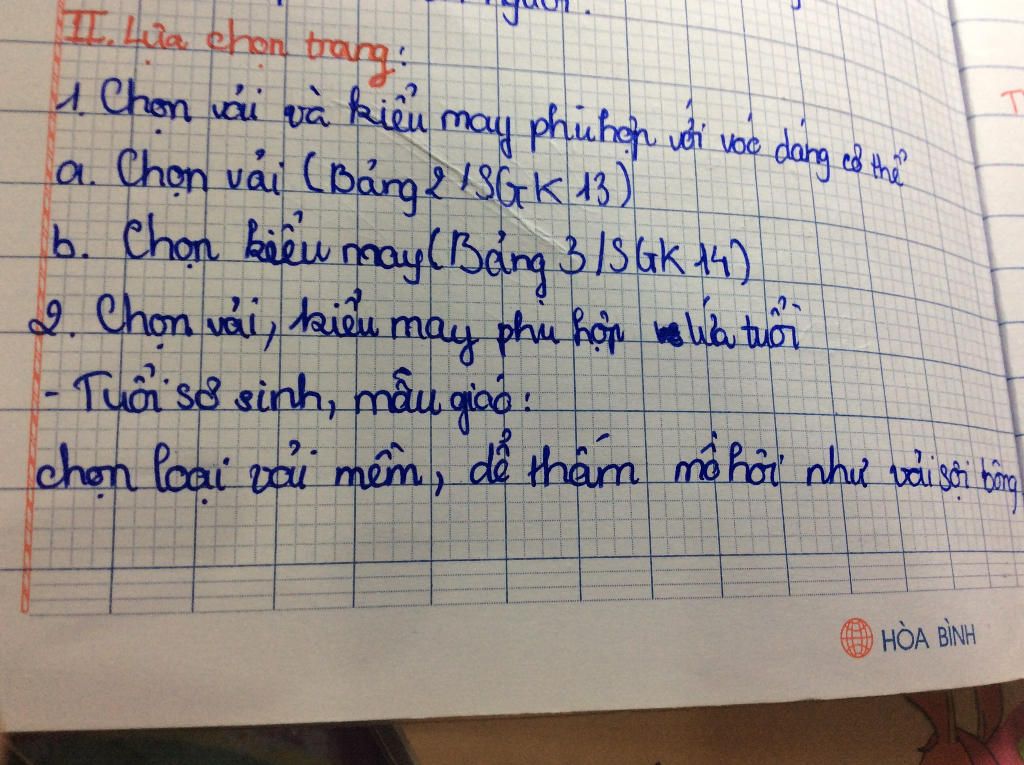 người.
II. Lựa chọn trang:
1. Chọn vải và kiểu may phù hợp với vóc dáng cơ thể
a. Chọn vải (Bảng 2 /SGK 13)
b. Chọn kiểu may (Bảng 3 /SGK 14)
2. Chọn vải, kiểu may phù hợp lứa tuổi
- Tuổi sơ sinh, mẫu giáo:
chọn loại vải mềm, dể thấm mồ hôi như vải sợi bông
HÒA BÌNH